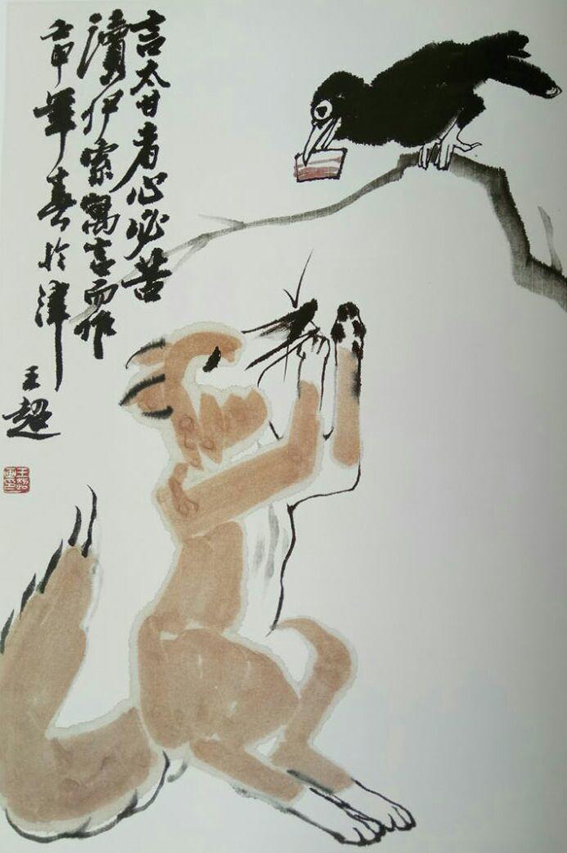 言太甘者心必苦
讀伊索寓言而作
壬申年春於津
王超